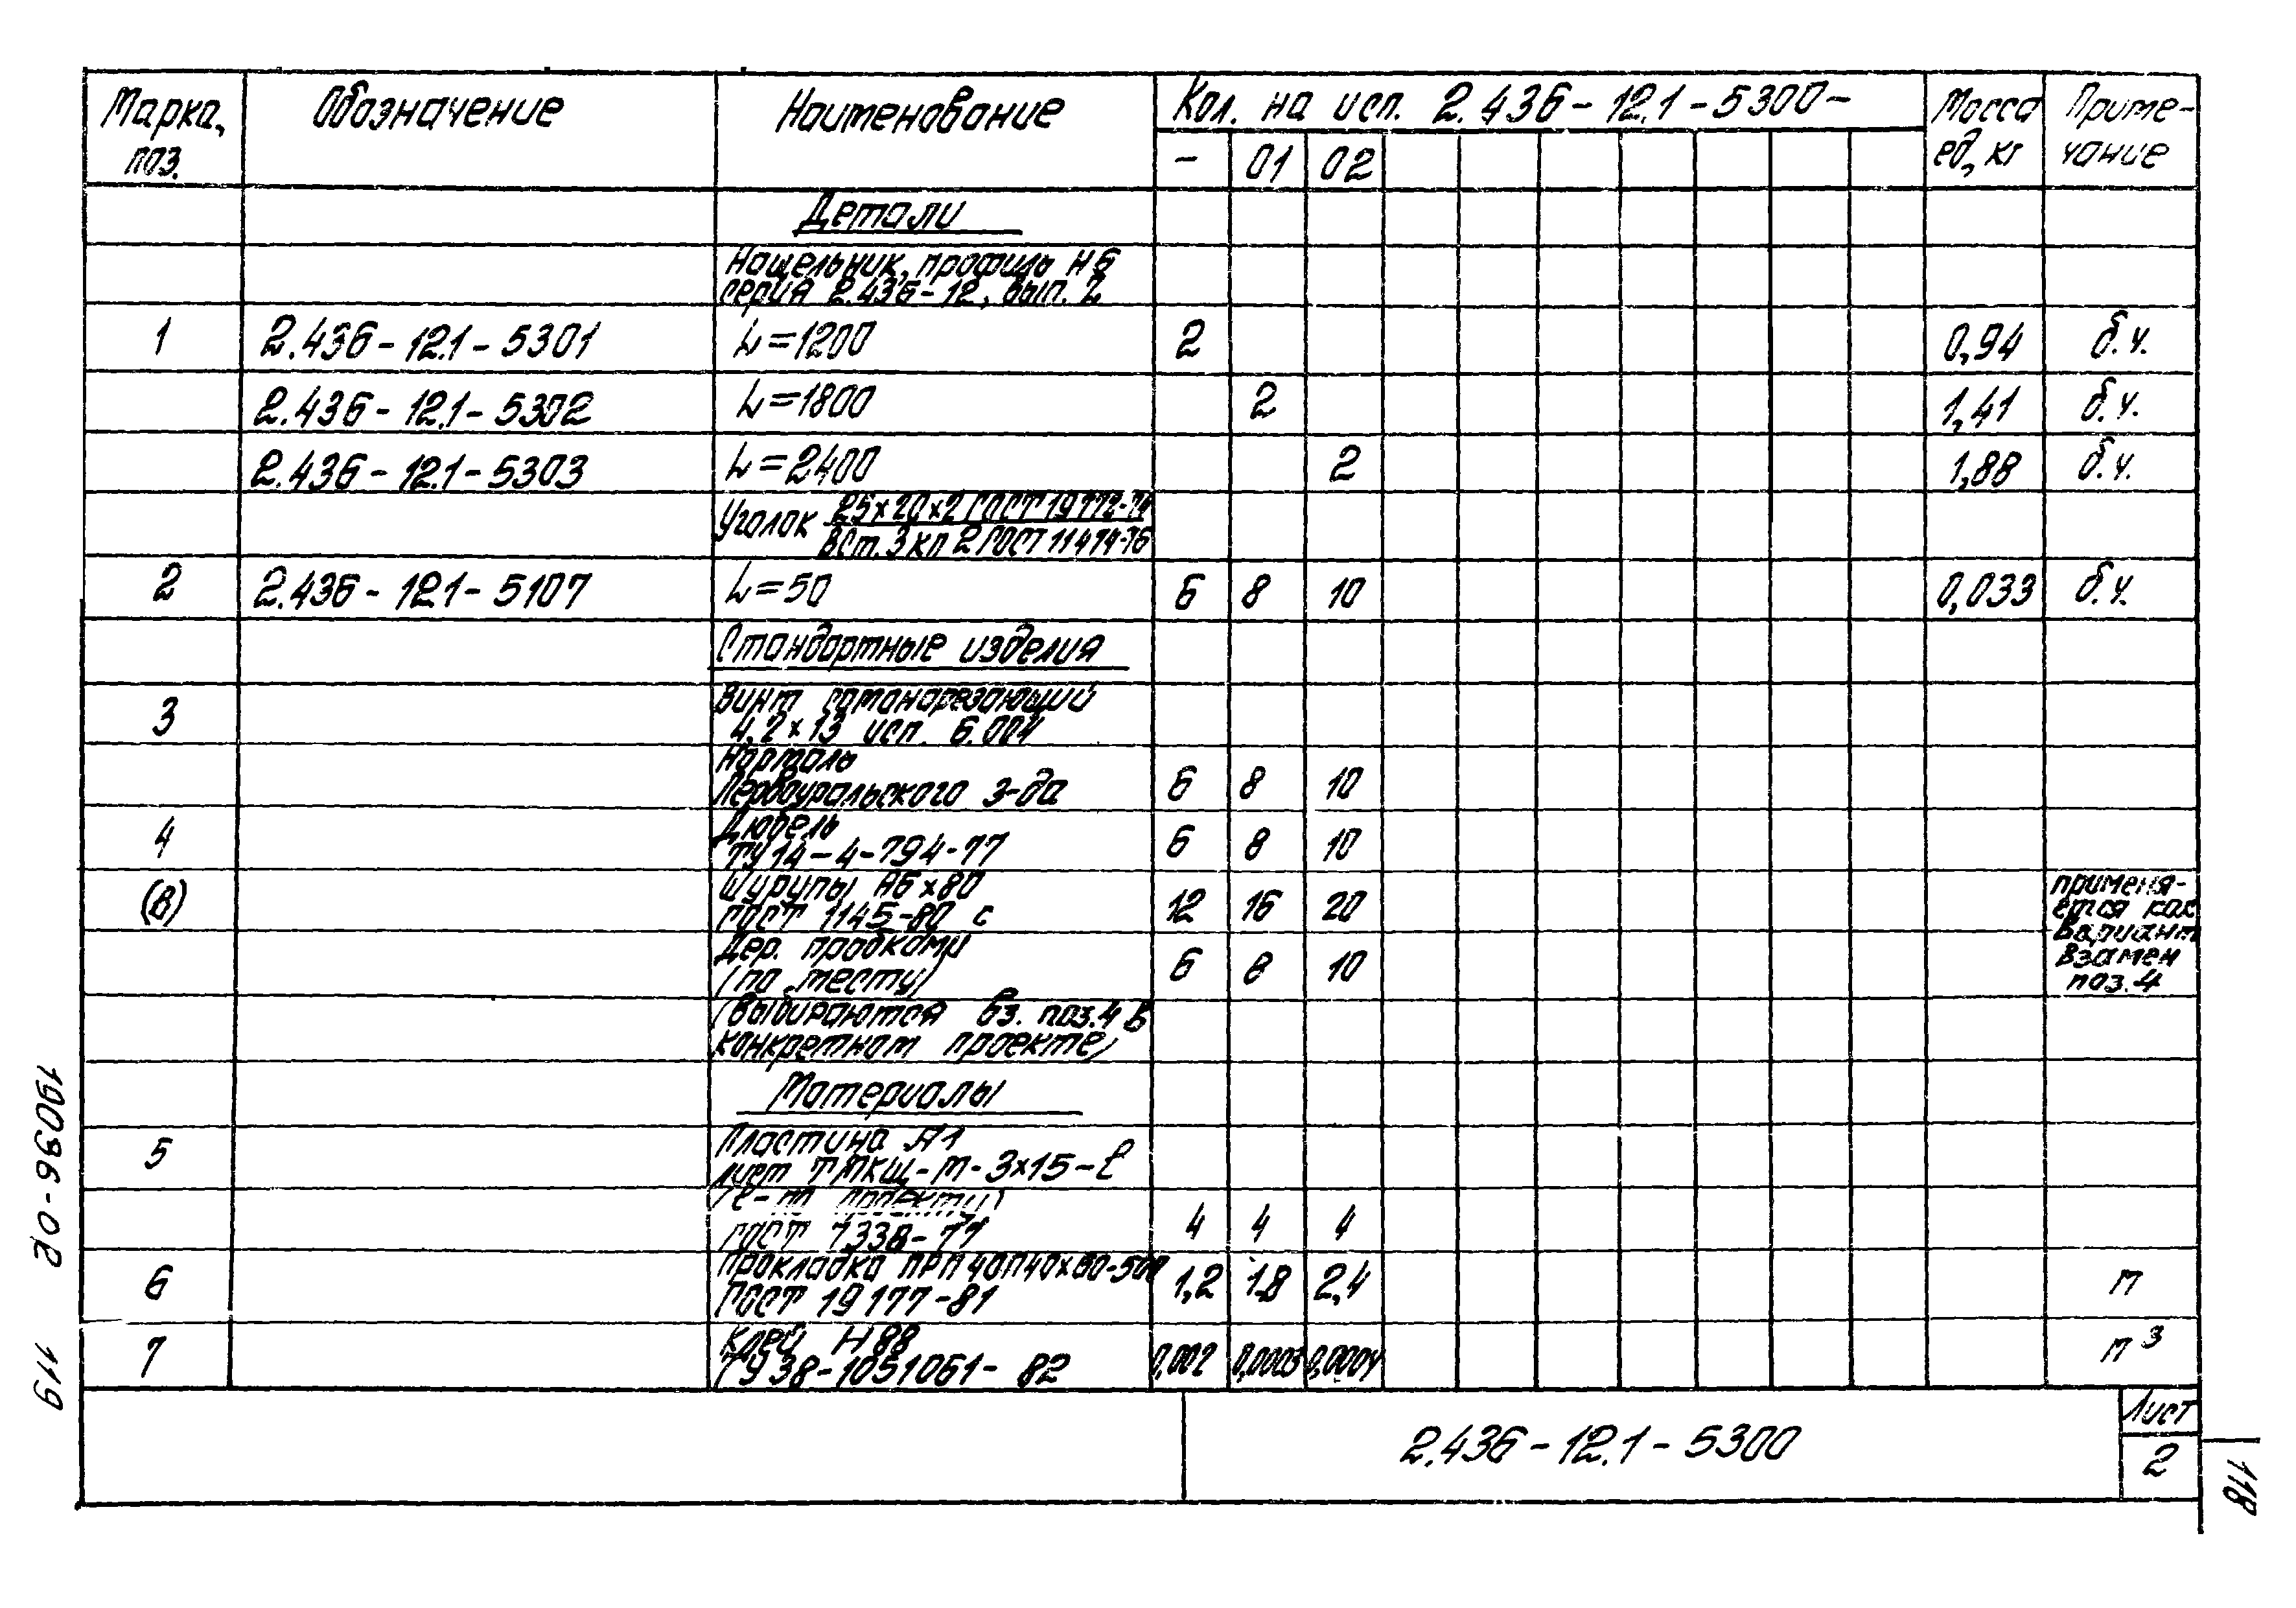 Марка, поз. Обозначение Наименование Кол. на исп. 2.436-12.1-5300- Масса ед, кг Приме-чание
- 01 02
Детали
Нащельник, профиль Н6
серия 2.436-12, вып. 2
1 2.436-12.1-5301 L=1200 2 0,94 б.ч.
2.436-12.1-5302 L=1800 2 1,41 б.ч.
2.436-12.1-5303 L=2400 2 1,88 б.ч.
Уголок 25×20×2 ГОСТ 19772-74
ВСт.3кп2 ГОСТ 11474-76
2 2.436-12.1-5107 L=50 6 8 10 0,033 б.ч.
Стандартные изделия
3 Винт самонарезающий
4,2×13 исп. 6.004
Нормаль
Первоуральского з-да 6 8 10
4 Дюбель
ТУ14-4-794-77 6 8 10
(8) Шурупы А6×80
ГОСТ 1145-80 с 12 16 20
Дер. пробками
(по месту) 6 8 10
применя-
ется как
вариант
взамен
поз.4
(Выбираются вз. поз.4 в
конкретном проекте)
Материалы
5 Пластина А1
лист ТМКЩ-М-3×15-ℓ
(ℓ-по проекту)
ГОСТ 7338-77 4 4 4
6 Прокладка ПРП 40П40×60-500
ГОСТ 19177-81 1,2 1,8 2,4 м
7 Клей Н88
ТУ38-1051061-82 0,002 0,0003 0,0004 м³
2.436-12.1-5300
Лист
2
19096-02 119
118